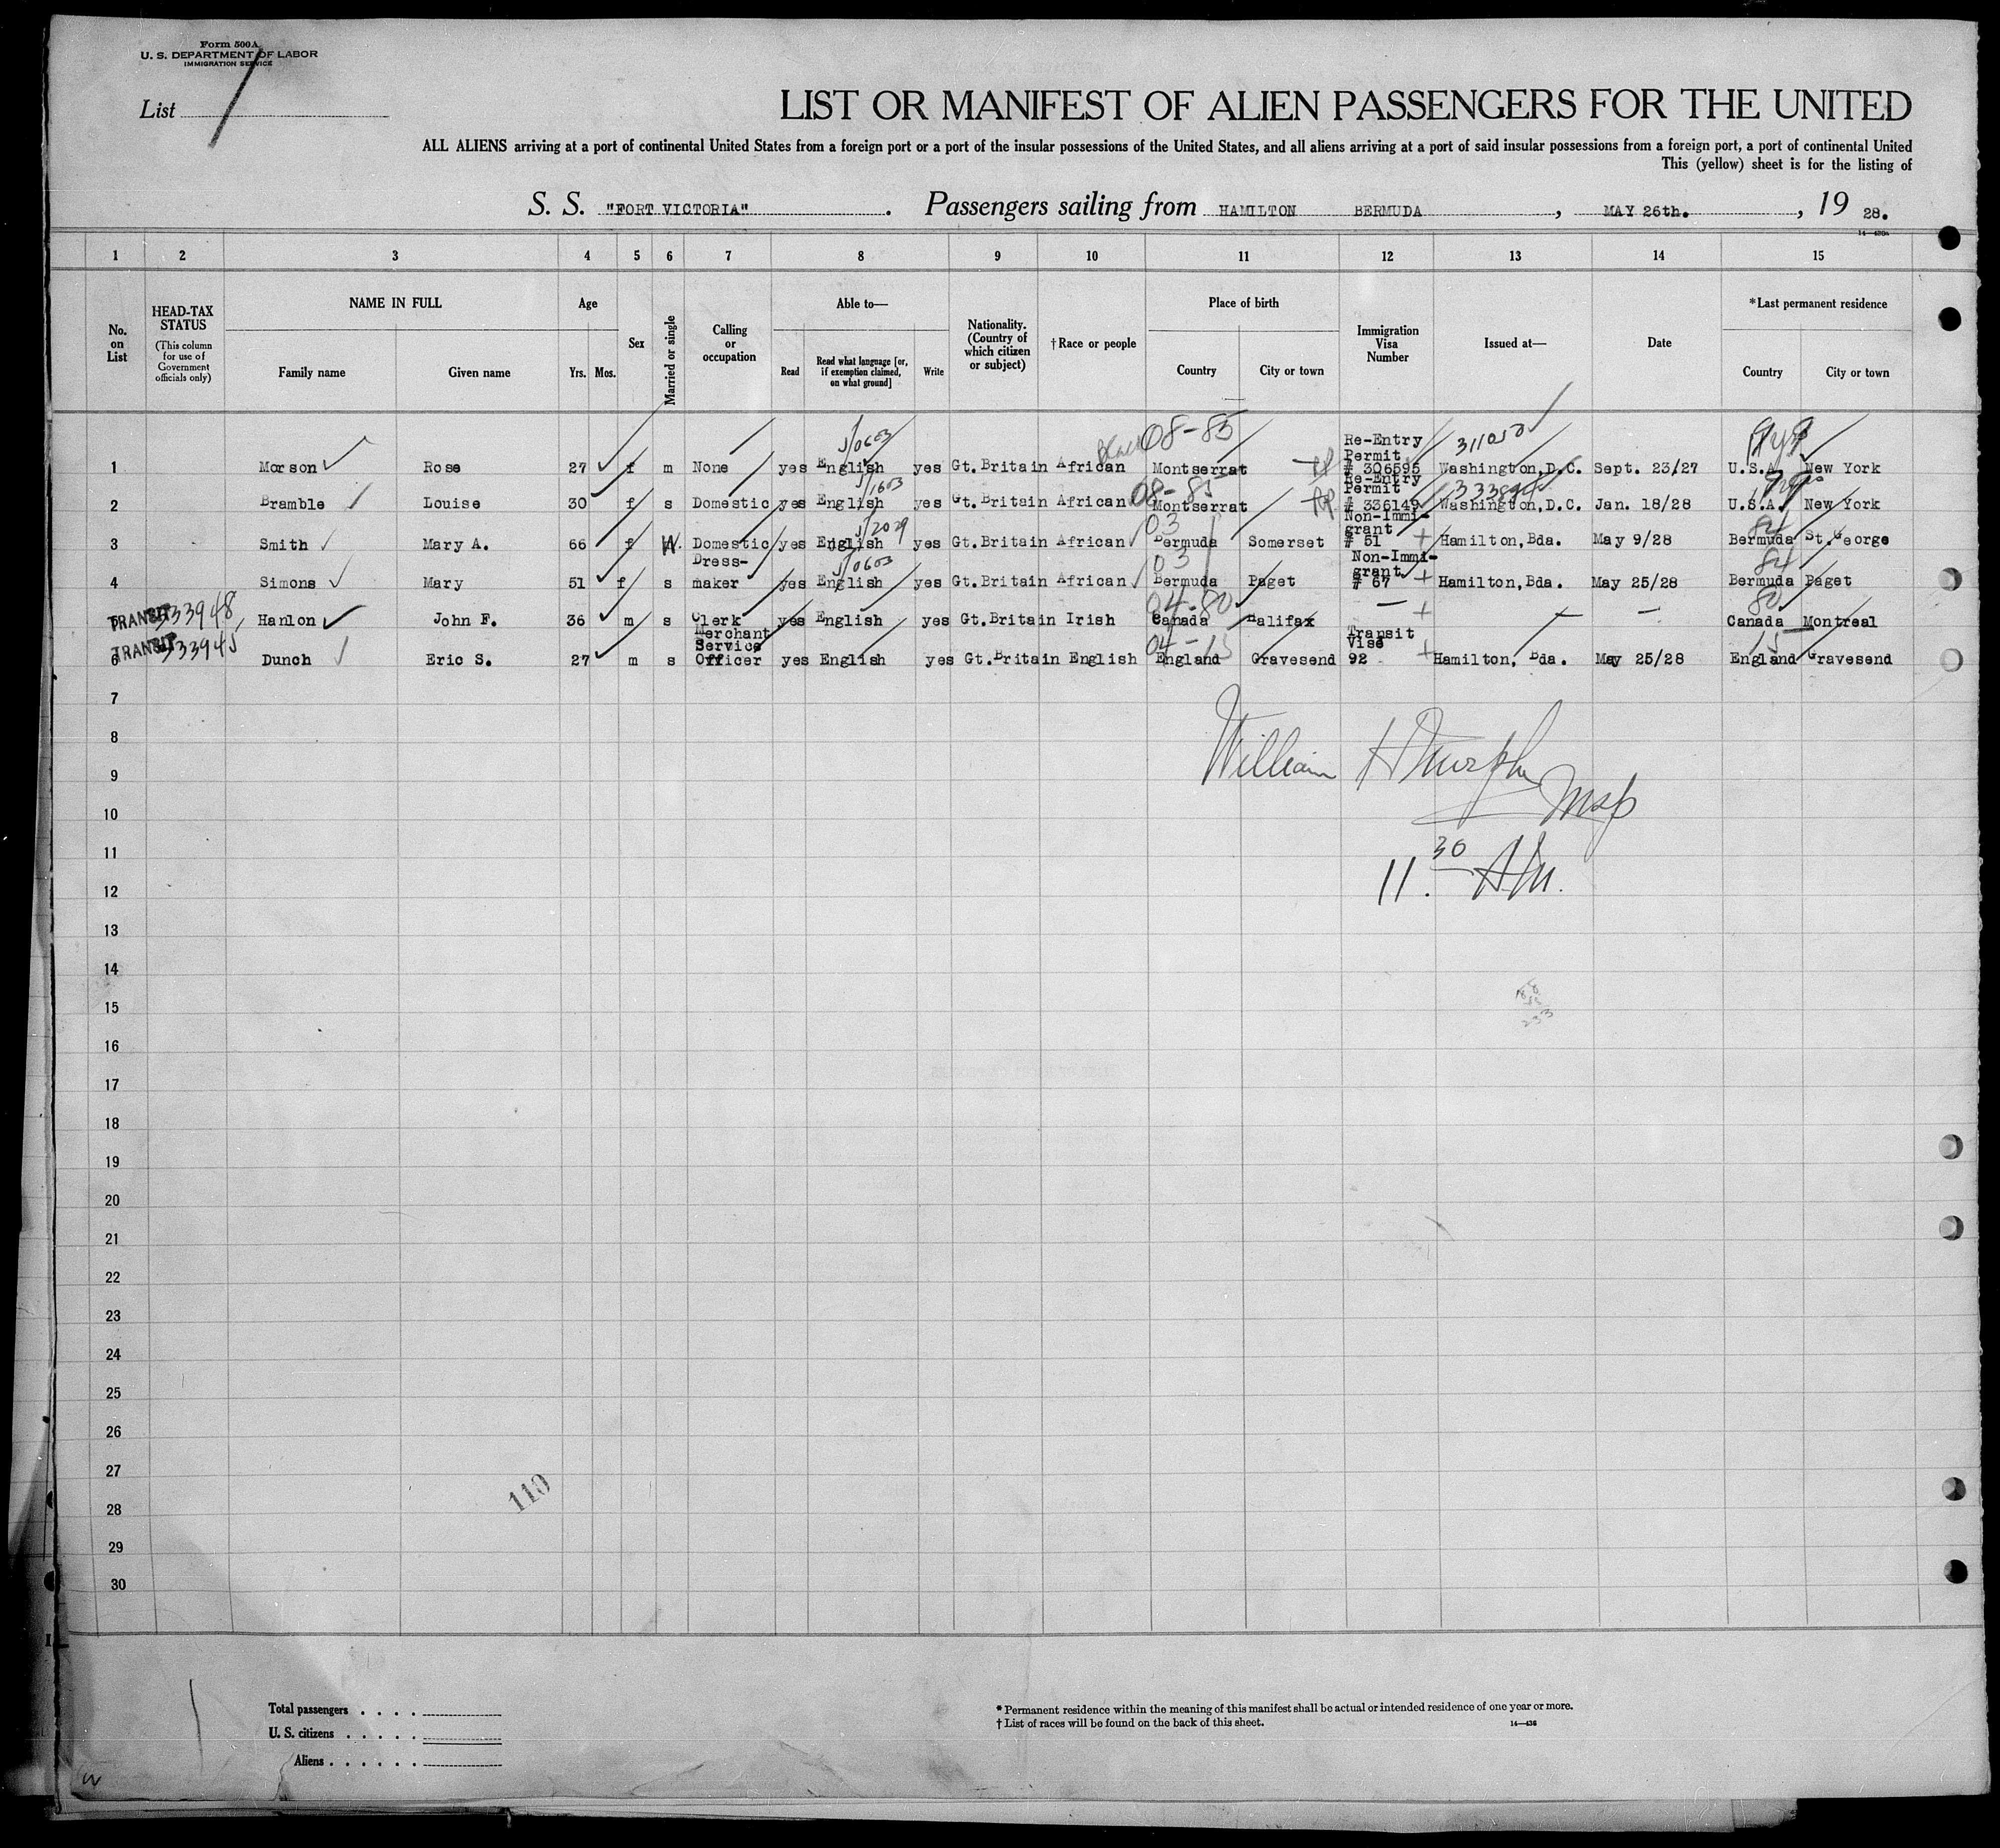 Form 500A
U. S. DEPARTMENT OF LABOR
IMMIGRATION SERVICE
List
LIST OR MANIFEST OF ALIEN PASSENGERS FOR THE UNITED
ALL ALIENS arriving at a port of continental United States from a foreign port or a port of the insular possessions of the United States, and all aliens arriving at a port of said insular possessions from a foreign port, a port of continental United
This (yellow) sheet is for the listing of
S. S. "FORT VICTORIA". Passengers sailing from HAMILTON BERMUDA, MAY 26th., 19 28.
1 2 3 4 5 6 7 8 9 10 11 12 13 14 15
No. on List
HEAD-TAX STATUS
(This column for use of Government officials only)
NAME IN FULL
Family name Given name
Age
Yrs. Mos.
Sex
Married or single
Calling or occupation
Able to—
Read Read what language [or, if exemption claimed, on what ground] Write
Nationality. (Country of which citizen or subject)
†Race or people
Place of birth
Country City or town
Immigration Visa Number
Issued at—
Date
*Last permanent residence
Country City or town
1 Morson Rose 27 f m None yes English yes Gt.Britain African 08-85 Montserrat Re-Entry Permit # 306595 311050 Washington,D.C. Sept. 23/27 U.S.A. New York
2 Bramble Louise 30 f s Domestic yes English yes Gt.Britain African 08-85 Montserrat Re-Entry Permit # 336149 Washington,D.C. Jan. 18/28 U.S.A. New York
3 Smith Mary A. 66 f W. Domestic yes English yes Gt.Britain African 03 Bermuda Somerset Non-Immigrant # 51 Hamilton,Bda. May 9/28 84 Bermuda St.George
4 Simons Mary 51 f s Dress-maker yes English yes Gt.Britain African 03 Bermuda Paget Non-Immi-grant # 67 Hamilton,Bda. May 25/28 84 Bermuda Paget
5 TRANSIT 333948 Hanlon John F. 36 m s Clerk yes English yes Gt.Britain Irish 04-80 Canada Halifax — — — 80 Canada Montreal
6 TRANSIT 333945 Dunch Eric S. 27 m s Merchant Service Officer yes English yes Gt.Britain English 04-15 England Gravesend Transit Vise 92 Hamilton, Bda. May 25/28 15 England Gravesend
7
William H Murphy
8
9
msp
10
11
11.30 AM.
12
13
14
15
16
17
18
19
20
21
22
23
24
25
26
27
110
28
29
30
Total passengers . . . .
U. S. citizens . . . . .
Aliens . . . . . .
* Permanent residence within the meaning of this manifest shall be actual or intended residence of one year or more.
† List of races will be found on the back of this sheet.
14—436